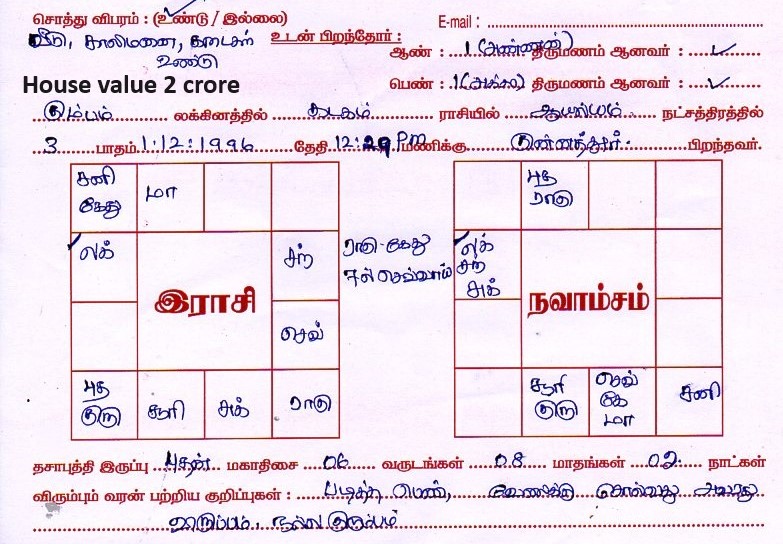 சொத்து விபரம் : (உண்டு / இல்லை) E-mail :
வீடு, காலிமனை, கடைகள் உண்டு உடன் பிறந்தோர் : ஆண் : 1 (அண்ணன்) திருமணம் ஆனவர் : ✓
House value 2 crore பெண் : 1 (அக்கா) திருமணம் ஆனவர் : ✓
கும்பம் லக்கினத்தில் கடகம் ராசியில் ஆயில்யம் நட்சத்திரத்தில்
3 பாதம் 1:12:1996 தேதி 12:29 PM மணிக்கு குன்னத்தூர் பிறந்தவர்.
சனி கேது மா
லக் சந்
செவ்
புத குரு சூரி சுக் ராகு
இராசி
ராகு-கேது
7ல் செவ்வாய்
புத ராகு
லக் சந் சுக்
சூரி குரு செவ் கே மா சனி
நவாம்சம்
தசாபுத்தி இருப்பு புதன் மகாதிசை 06 வருடங்கள் 08 மாதங்கள் 02 நாட்கள்
விரும்பும் வரன் பற்றிய குறிப்புகள் : படித்த பெண், வேலைக்கு செல்வது அவரது
விருப்பம், நல்ல குடும்பம்